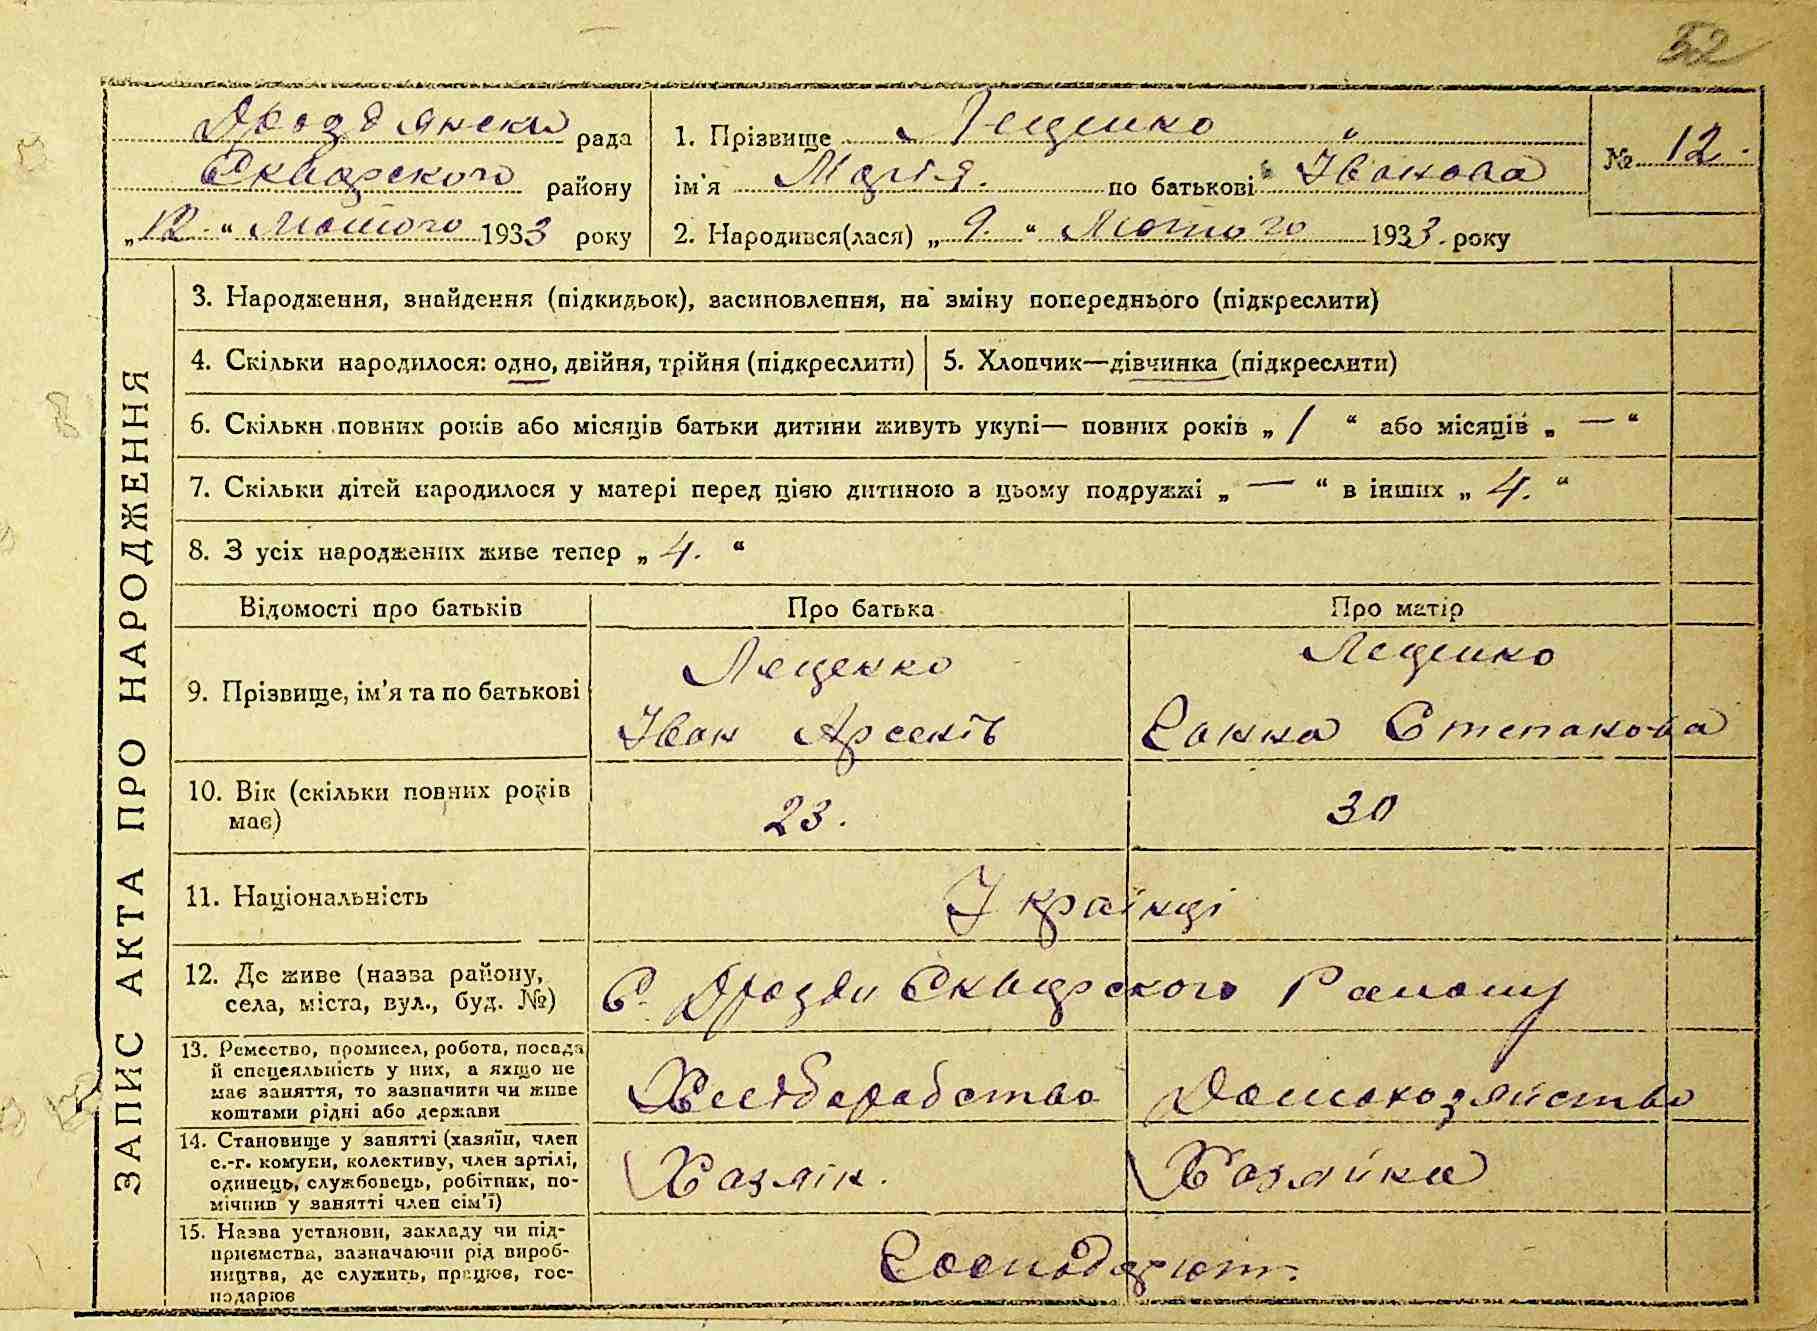 52
Дроздянська рада
Сквирского району
„12.“ Лютого 1933 року
1. Прізвище Лещенко
ім'я Марія. по батькові Іванова
2. Народився(лася) „9.“ Лютого 1933. року
№ 12.
ЗАПИС АКТА ПРО НАРОДЖЕННЯ
3. Народження, знайдення (підкидьок), засиновлення, на зміну попереднього (підкреслити)
4. Скільки народилося: одно, двійня, трійня (підкреслити)
5. Хлопчик—дівчинка (підкреслити)
6. Скільки повних років або місяців батьки дитини живуть укупі— повних років „ 1 “ або місяців „ — “
7. Скільки дітей народилося у матері перед цією дитиною в цьому подружжі „ — “ в інших „ 4. “
8. З усіх народжених живе тепер „ 4. “
Відомості про батьків Про батька Про матір
9. Прізвище, ім'я та по батькові
Лещенко
Іван Арсенів
Лещенко
Ганна Степанова
10. Вік (скільки повних років
має)
23. 30
11. Національність Українці
12. Де живе (назва району,
села, міста, вул., буд. №)
С. Дрозди Сквирского Району
13. Ремество, промисел, робота, посада
й спецеяльність у них, а якщо не
має заняття, то зазначити чи живе
коштами рідні або держави
Хліборобство Домохозяйство
14. Становище у занятті (хазяїн, член
с.-г. комуни, колективу, член артілі,
одинець, службовець, робітник, по-
мічник у занятті член сім'ї)
Хазяін. Хазяйка
15. Назва установи, закладу чи під-
приємства, зазначаючи рід вироб-
ництва, де служить, працює, гос-
подарює
Господарют.